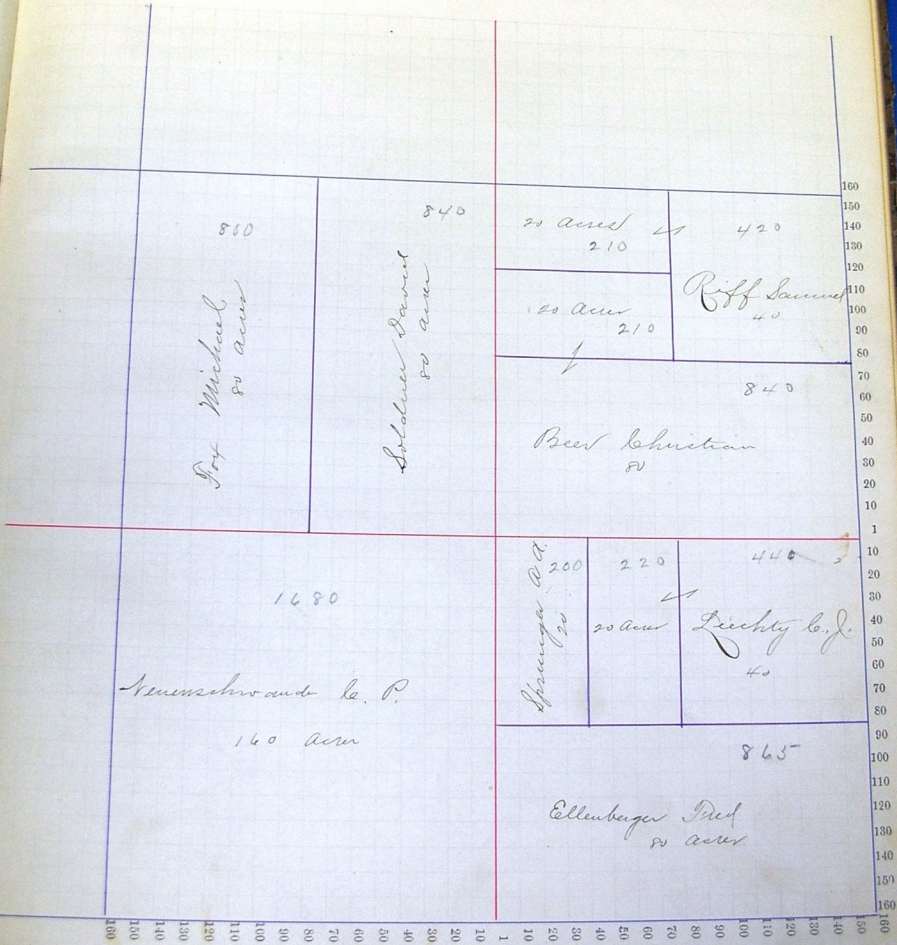 800
Fox Michael
80 acres
840
Soldner David
80 acres
20 acres
210
20 acres
210
420
Riff Samuel
40
840
Beer Christian
80
1680
Neuenschwander C. P.
160 acres
Sprunger
20
200
220
20 acres
440
Liechty C. J.
40
865
Ellenberger Fred
80 acres
160
150
140
130
120
110
100
90
80
70
60
50
40
30
20
10
1
10
20
30
40
50
60
70
80
90
100
110
120
130
140
150
160
160 150 140 130 120 110 100 90 80 70 60 50 40 30 20 10 1 10 20 30 40 50 60 70 80 90 100 110 120 130 140 150 160